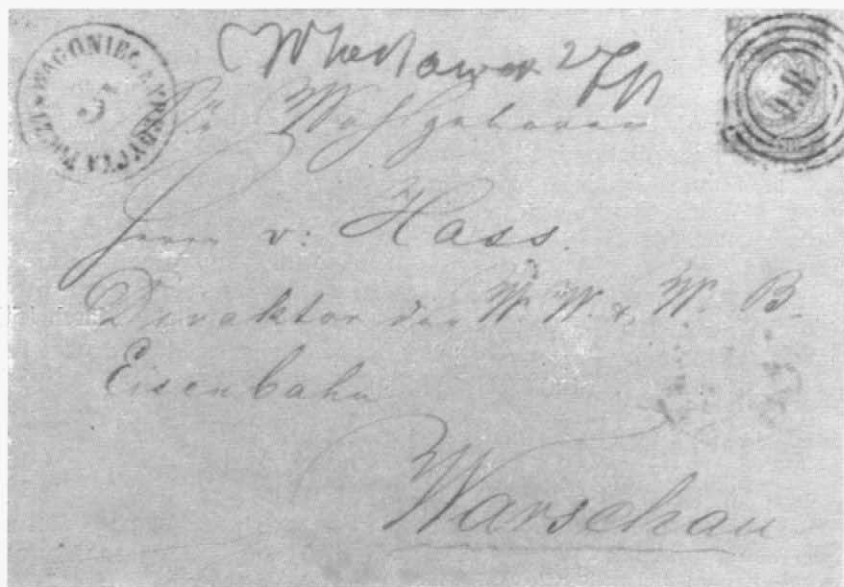 EXPEDYCYA POCZT WAGONIEC
5
Włocławek 27/11
Sr Wohlgeboren
Herrn v: Hass.
Direktor der W. W. & W. B.
Eisenbahn
Warschau